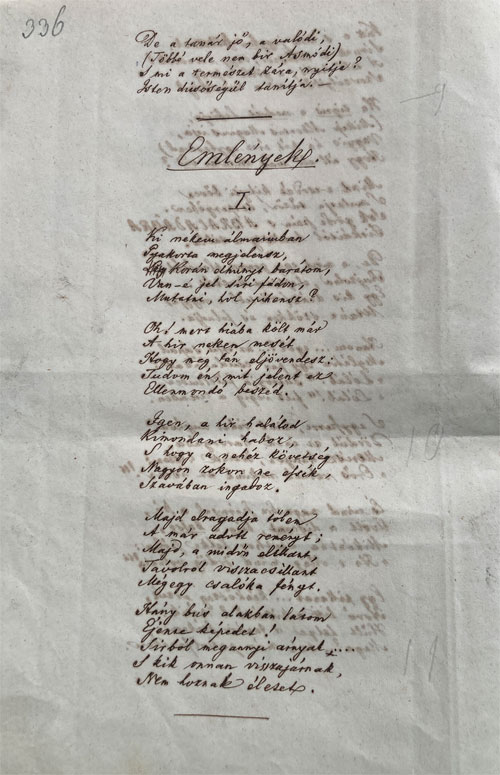 336
De a tanár jő, a valódi,
(Többé vele nem bir Asmódi)
S mi a természet zára, nyitja?
Isten dicsőségűl tanítja. —
Emlények.
I.
Ki nékem álmaimban
Gyakorta megjelensz,
Korán elhúnyt barátom,
Van-e jel siri fádon,
Mutatni, hol pihensz?
Oh! mert hiába költ már
A hir nekem mesét
Hogy még tán eljövendesz:
Tudom én, mit jelent ez
Ellenmondó beszéd.
Igen, a hir halálod
Kimondani haboz,
S hogy a nehéz követség
Nagyon zokon ne essék,
Szavában ingadoz.
Majd elragadja tőlem
A már adott reményt;
Majd, a midőn elillant,
Távolról visszacsillant
Mégegy csalóka fényt.
Hány bús alakban látom
Gyönge képedet!
Sirból megannyi árnyak,...
S kik onnan visszajárnak,
Nem hoznak életet.